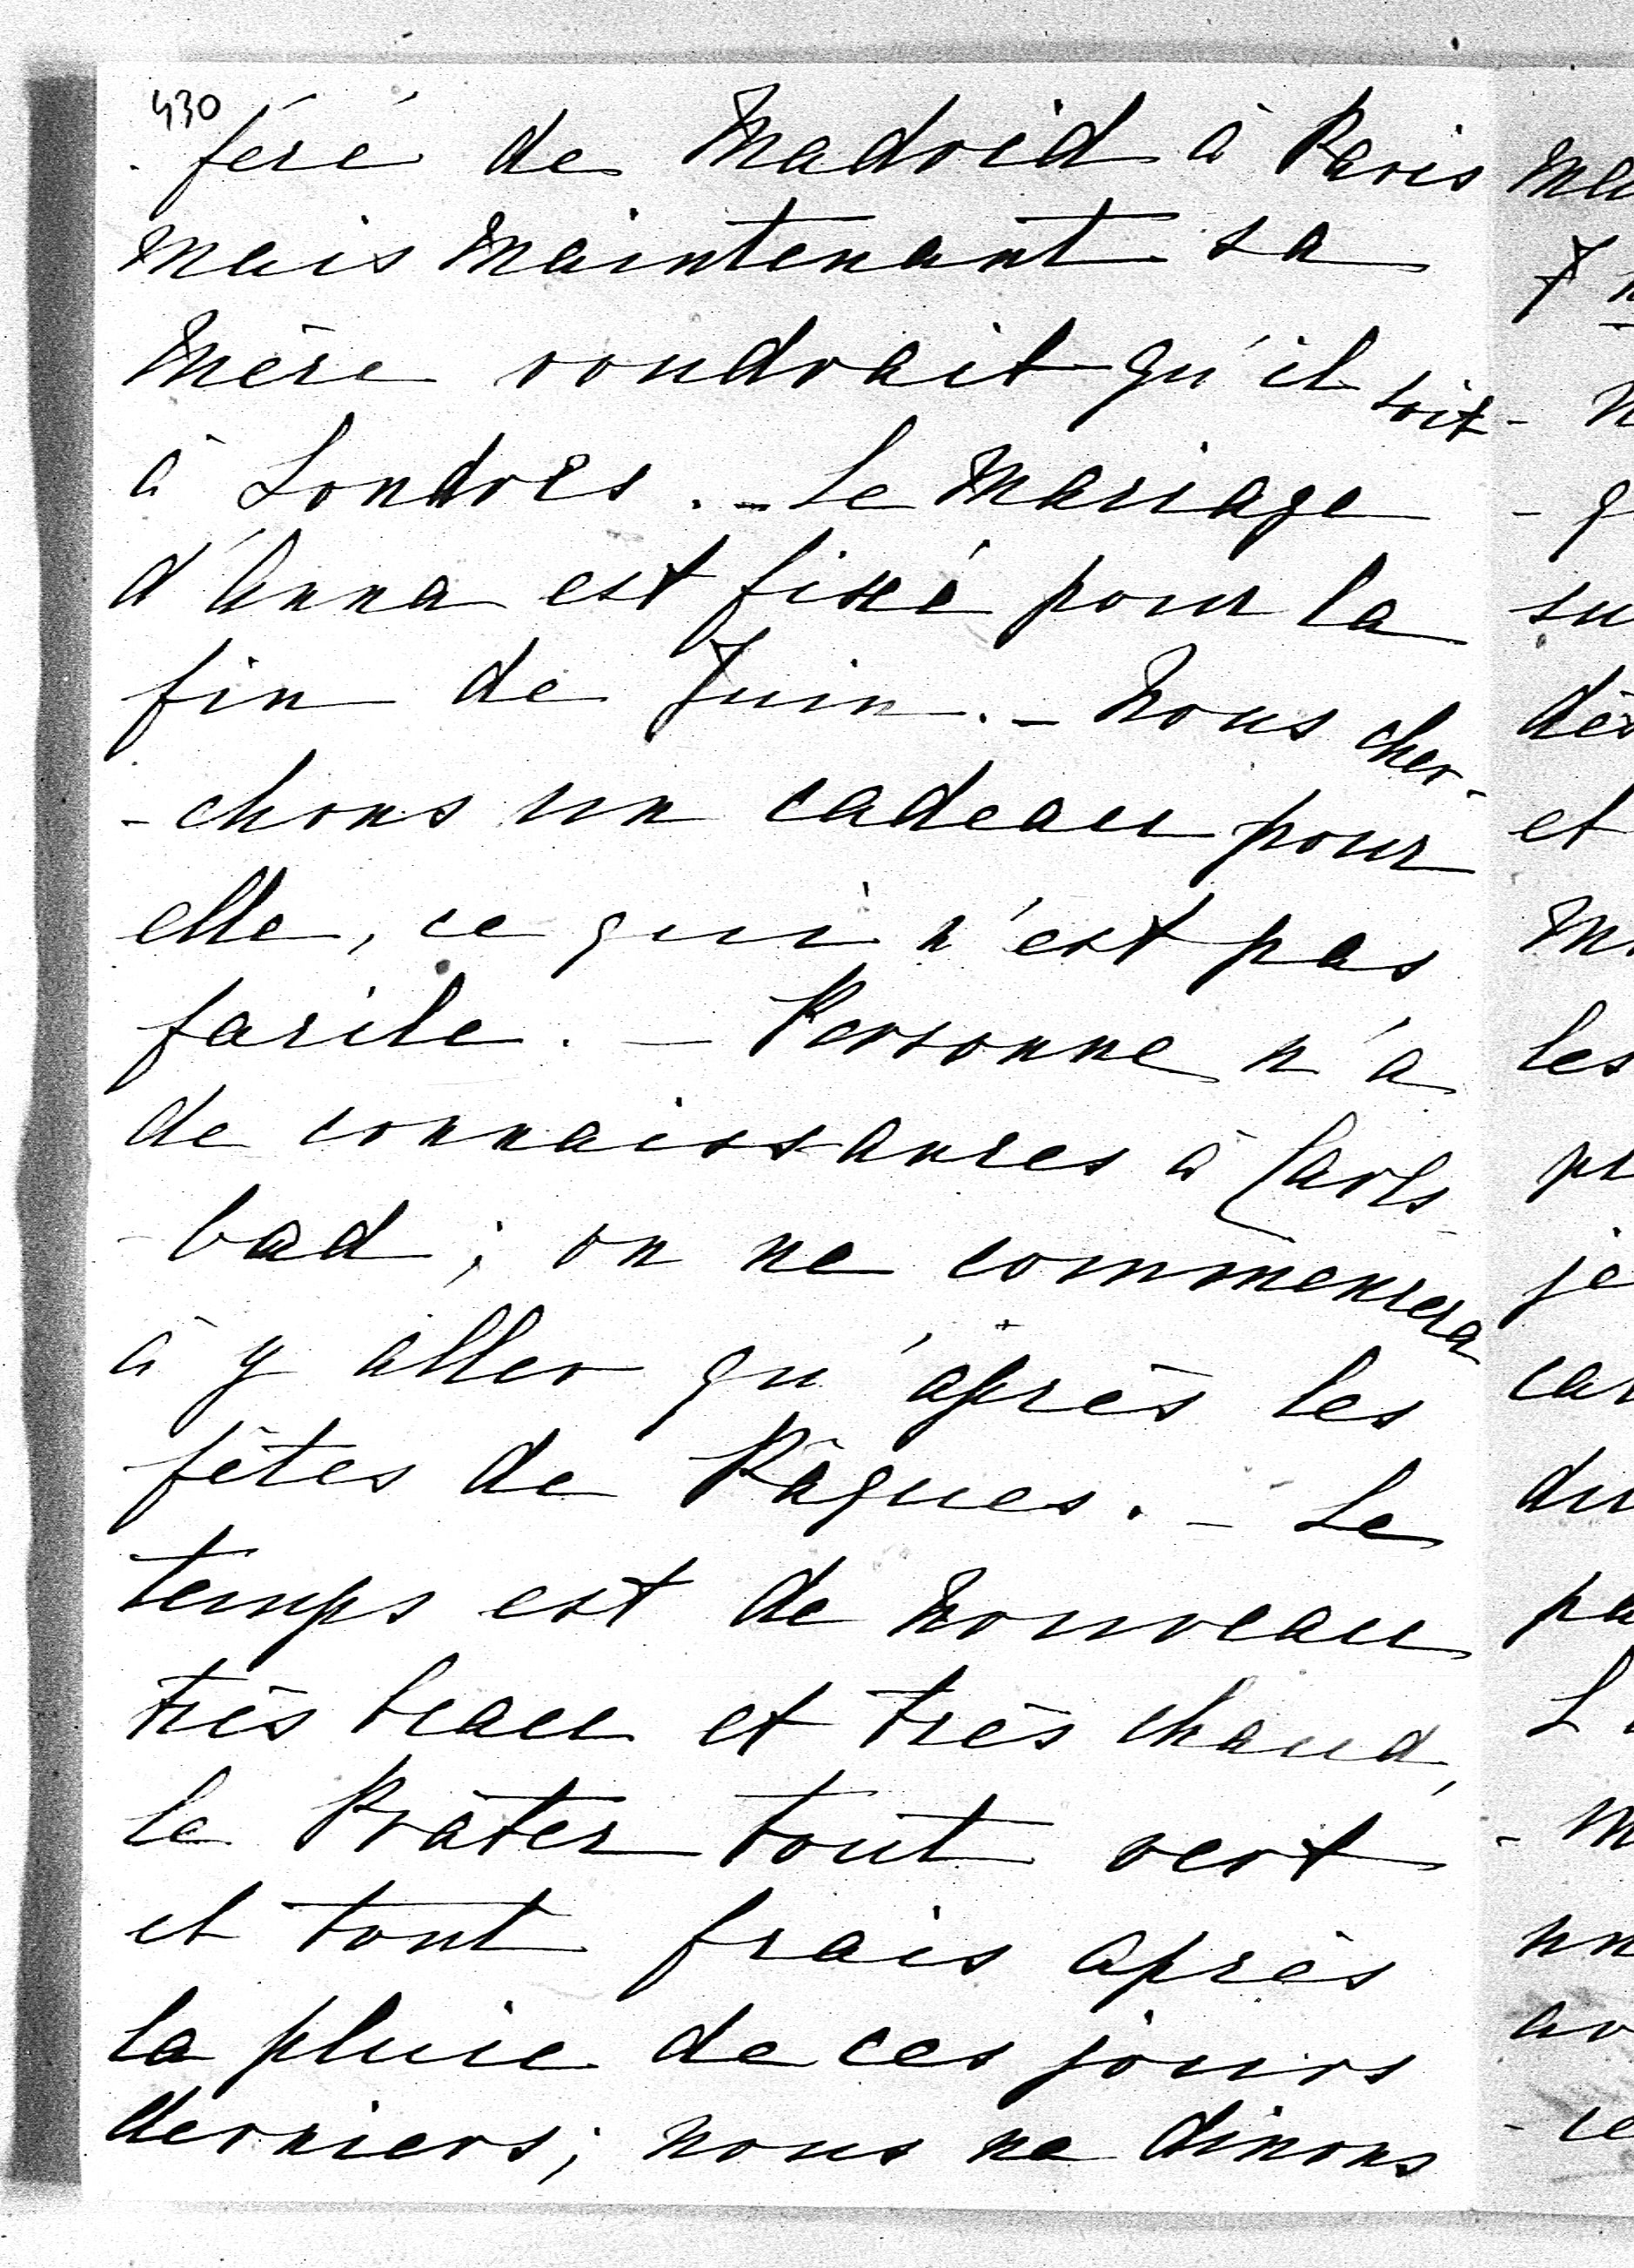 430
-féré de Madrid à Paris
mais maintenant sa
Mère voudrait qu'il soit
à Londres. - Le Mariage
d'Anna est fixé pour la
fin de Juin. - Nous cher-
-chons un cadeau pour
elle, ce qui n'est pas
facile. - Personne n'a
de connaissances à Carls-
-bad ; on ne commencera
à y aller qu'après les
fêtes de Pâques. - Le
temps est de nouveau
très beau et très chaud,
le Prater tout vert
et tout frais après
la pluie de ces jours
derniers ; nous ne dinons